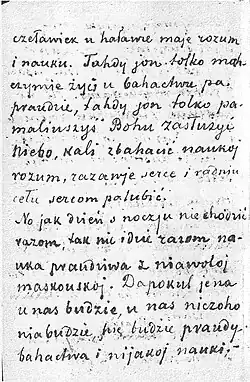 czeławiek u haławie maje rozum
i nauku. Tahdy jon tolko mah
czymie życi u bahactwi pa
praudzie, tahdy jon tolko pa-
maliuszyś Bohu zasłużyć
Niebo, kali zbahacić naukoj
rozum, razawje serce i radniu
cełu sercom palubić.
No jak dzień z noczu nie chodzić
razom, tak nie iduć razom na-
uka praudziwa z niawoloj
maskouskoj. Dapokul jena
u nas budzie, u nas niczoho
niabudzie, nie budzie praudy,
bahactwa i nijakoj nauki,